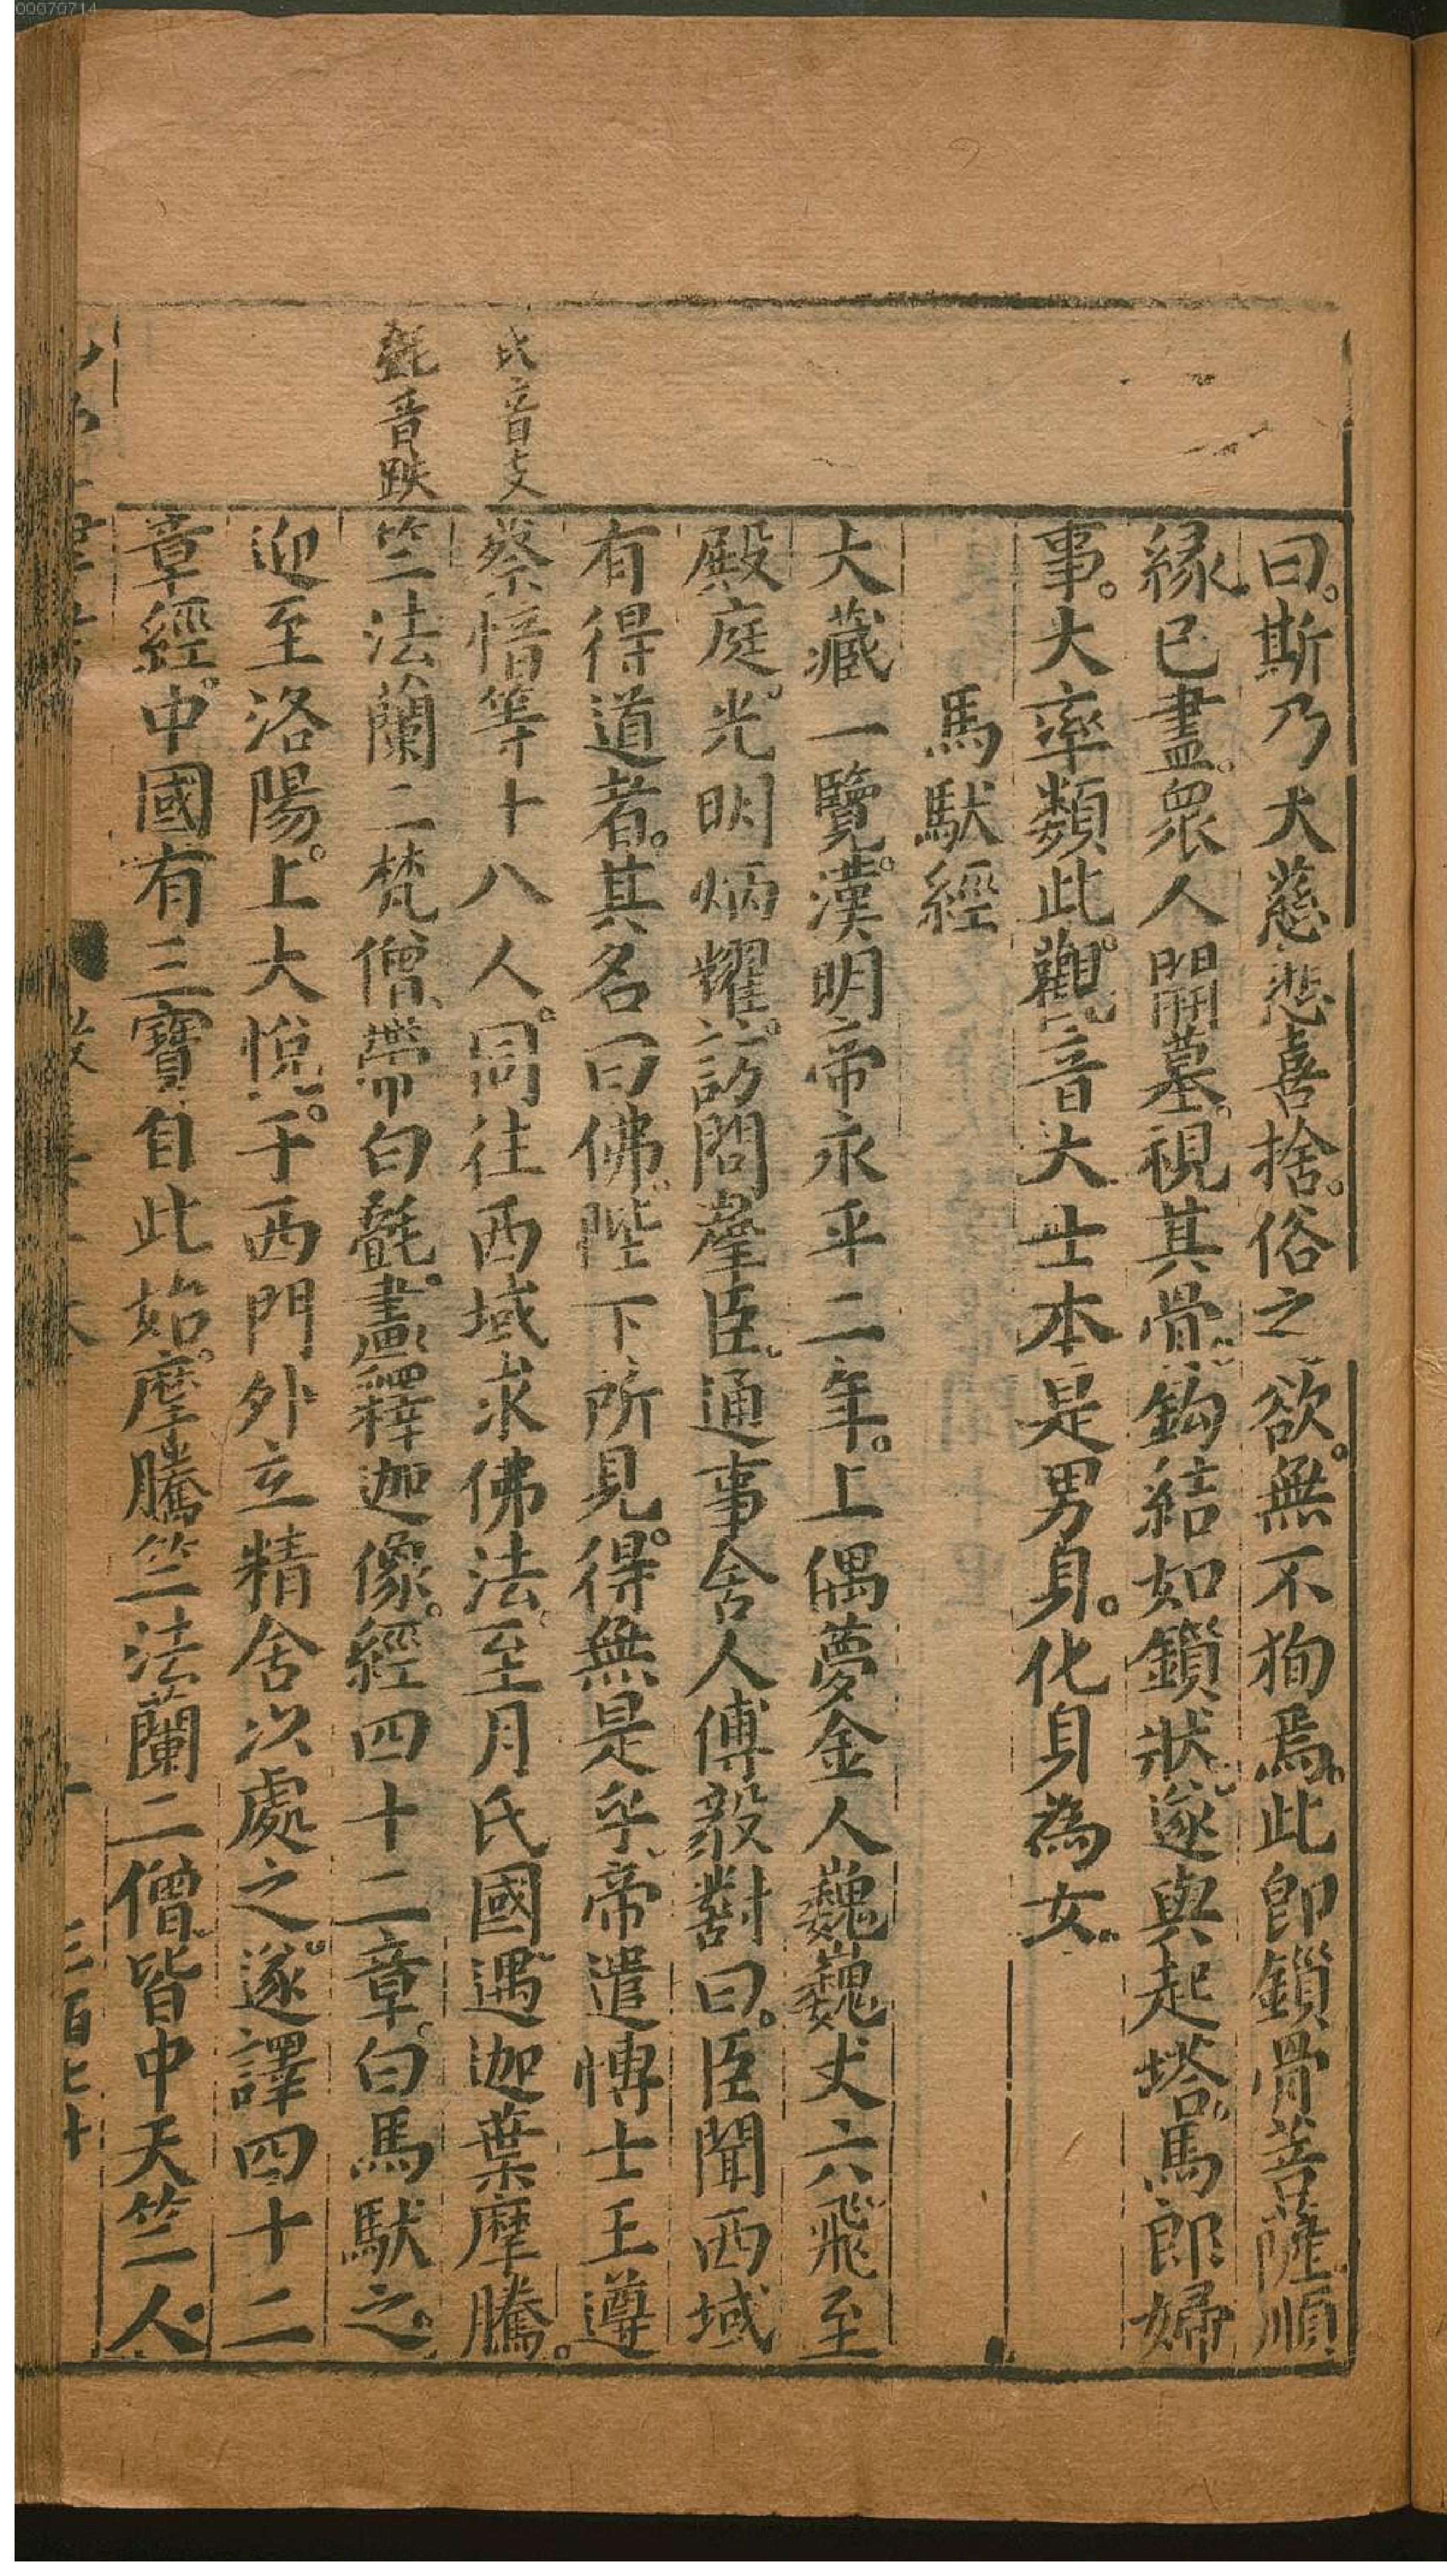 00070714
曰。斯乃大慈悲喜捨。俗之欲。無不狥焉。此即鎖骨菩薩。順
緣已盡。衆人開墓。視其骨。鈎結如鎖狀。遂與起塔。馬郎婦
事。大率類此。觀音大士本是男身。化身為女。
馬馱經
大藏一覽。漢明帝永平二年。上偶夢金人巍巍丈六飛至
殿庭。光明炳耀。訪問羣臣。通事舍人傅毅對曰。臣聞西域
有得道者。其名曰佛。陛下所見。得無是乎。帝遣博士王遵
氏音支
蔡愔等十八人。同往西域求佛法。至月氏國。遇迦葉摩騰。
㲲音跌
竺法蘭二梵僧。帶白㲲。畫釋迦像。經四十二章。白馬馱之。
迎至洛陽。上大悅。于西門外立精舍以處之。遂譯四十二
章經。中國有三寶自此始。摩騰竺法蘭二僧。皆中天竺人。